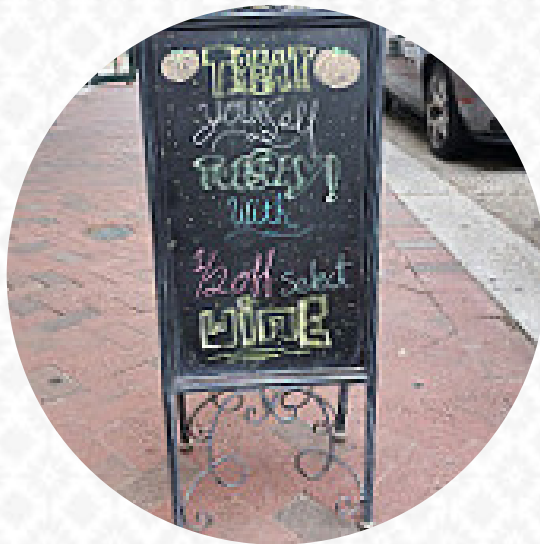 TREAT
yourself
TUESDAY!
with
1/2 off select
WINE